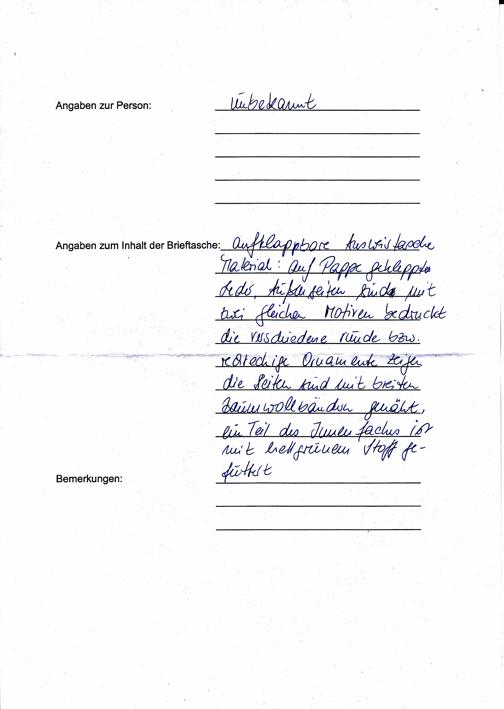 Angaben zur Person: Unbekannt
Angaben zum Inhalt der Brieftasche: aufklappbare Ausweistasche
Material: auf Pappe geklebtes
Leder, Außenseiten sind mit
zwei gleichen Motiven bedruckt
die verschiedene runde bzw.
rechteckige Ornamente zeigen
die Seiten sind mit breiten
Baumwollbändern genäht,
ein Teil des Innenfaches ist
mit hellgrünem Stoff ge-
füttert
Bemerkungen: